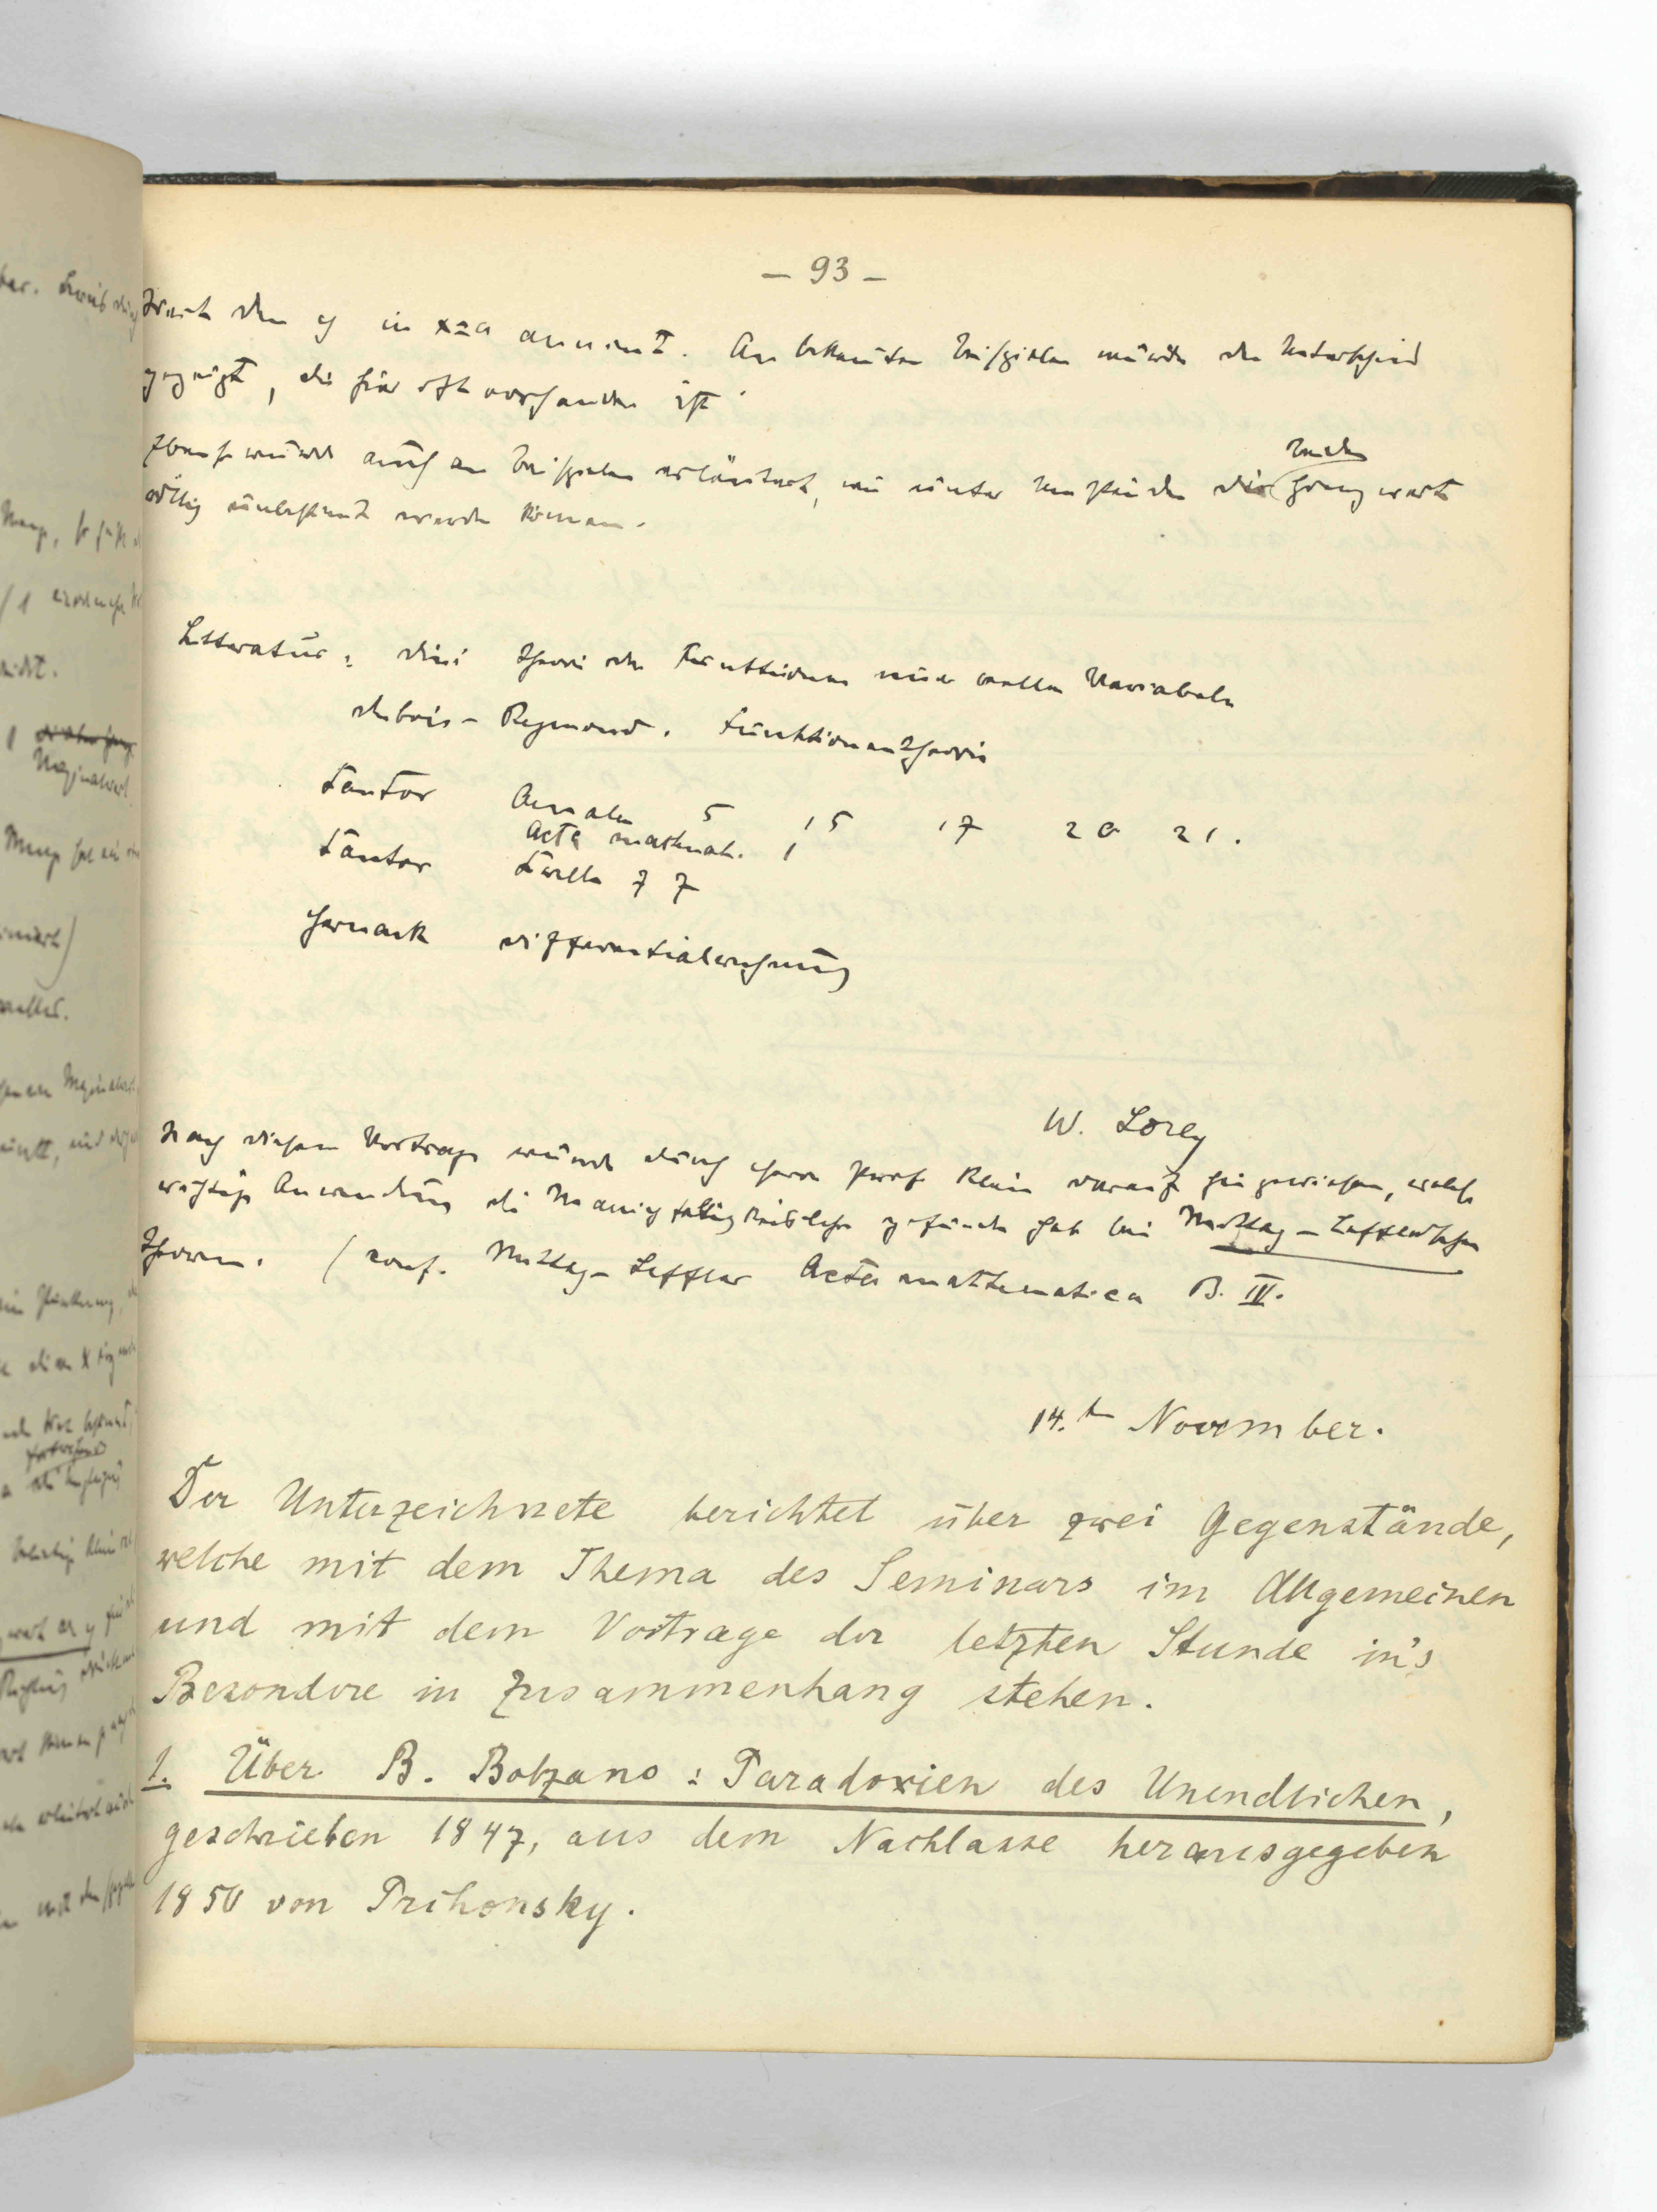 – 93 –
den y in x=a annimt. An bekannten Beispielen wurde der Unterschied
gezeigt, der hier oft vorhanden ist.
Ebenso wurde auch an Beispielen erläutert, wie unter Umständen die beiden Grenzwerte
völlig unbestimt werden können.
Litteratur: Dini Theorie der Funktionen einer reellen Variabeln
Dubois-Reymond. Funktionentheorie
Cantor Annalen 5 15 17 20 21.
Acta mathmat. 1
Cantor Crelle 77
Harnack Differentialrechnung
W. Lorey
Nach diesem Vortrage wurde durch Herrn Prof Klein darauf hingewiesen, welche
wichtige Anwendung die Manigfaltigkeitslehre gefunden hat bei Mittag-Lefflerschen
Theorem. (conf. Mittag-Leffler Acta mathematica B. IV.
14. November.
Der Unterzeichnete berichtet über zwei Gegenstände,
welche mit dem Thema des Seminars im Allgemeinen
und mit dem Vortrage der letzten Stunde in's
Besondere in Zusammenhang stehen.
1. Über B. Bolzano: Paradoxien des Unendlichen,
geschrieben 1847, aus dem Nachlasse herausgegeben
1850 von Prihonsky.